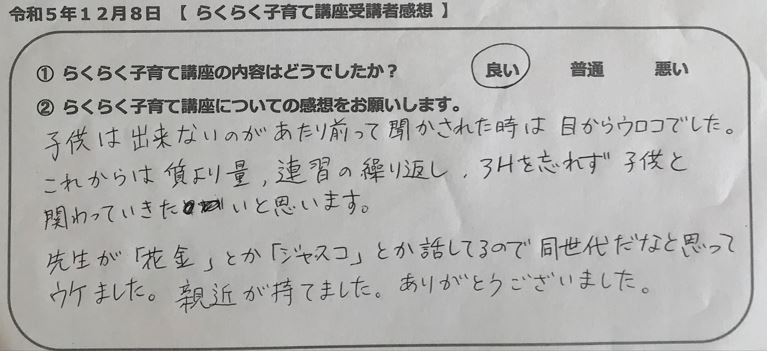 令和5年12月8日 【 らくらく子育て講座受講者感想 】
① らくらく子育て講座の内容はどうでしたか? 良い 普通 悪い
② らくらく子育て講座についての感想をお願いします。
子供は出来ないのがあたり前って聞かされた時は目からウロコでした。
これからは質より量,連習の繰り返し,3Hを忘れず子供と
関わっていきたいと思います。
先生が「花金」とか「ジャスコ」とか話してるので同世代だなと思って
ウケました。親近が持てました。ありがとうございました。